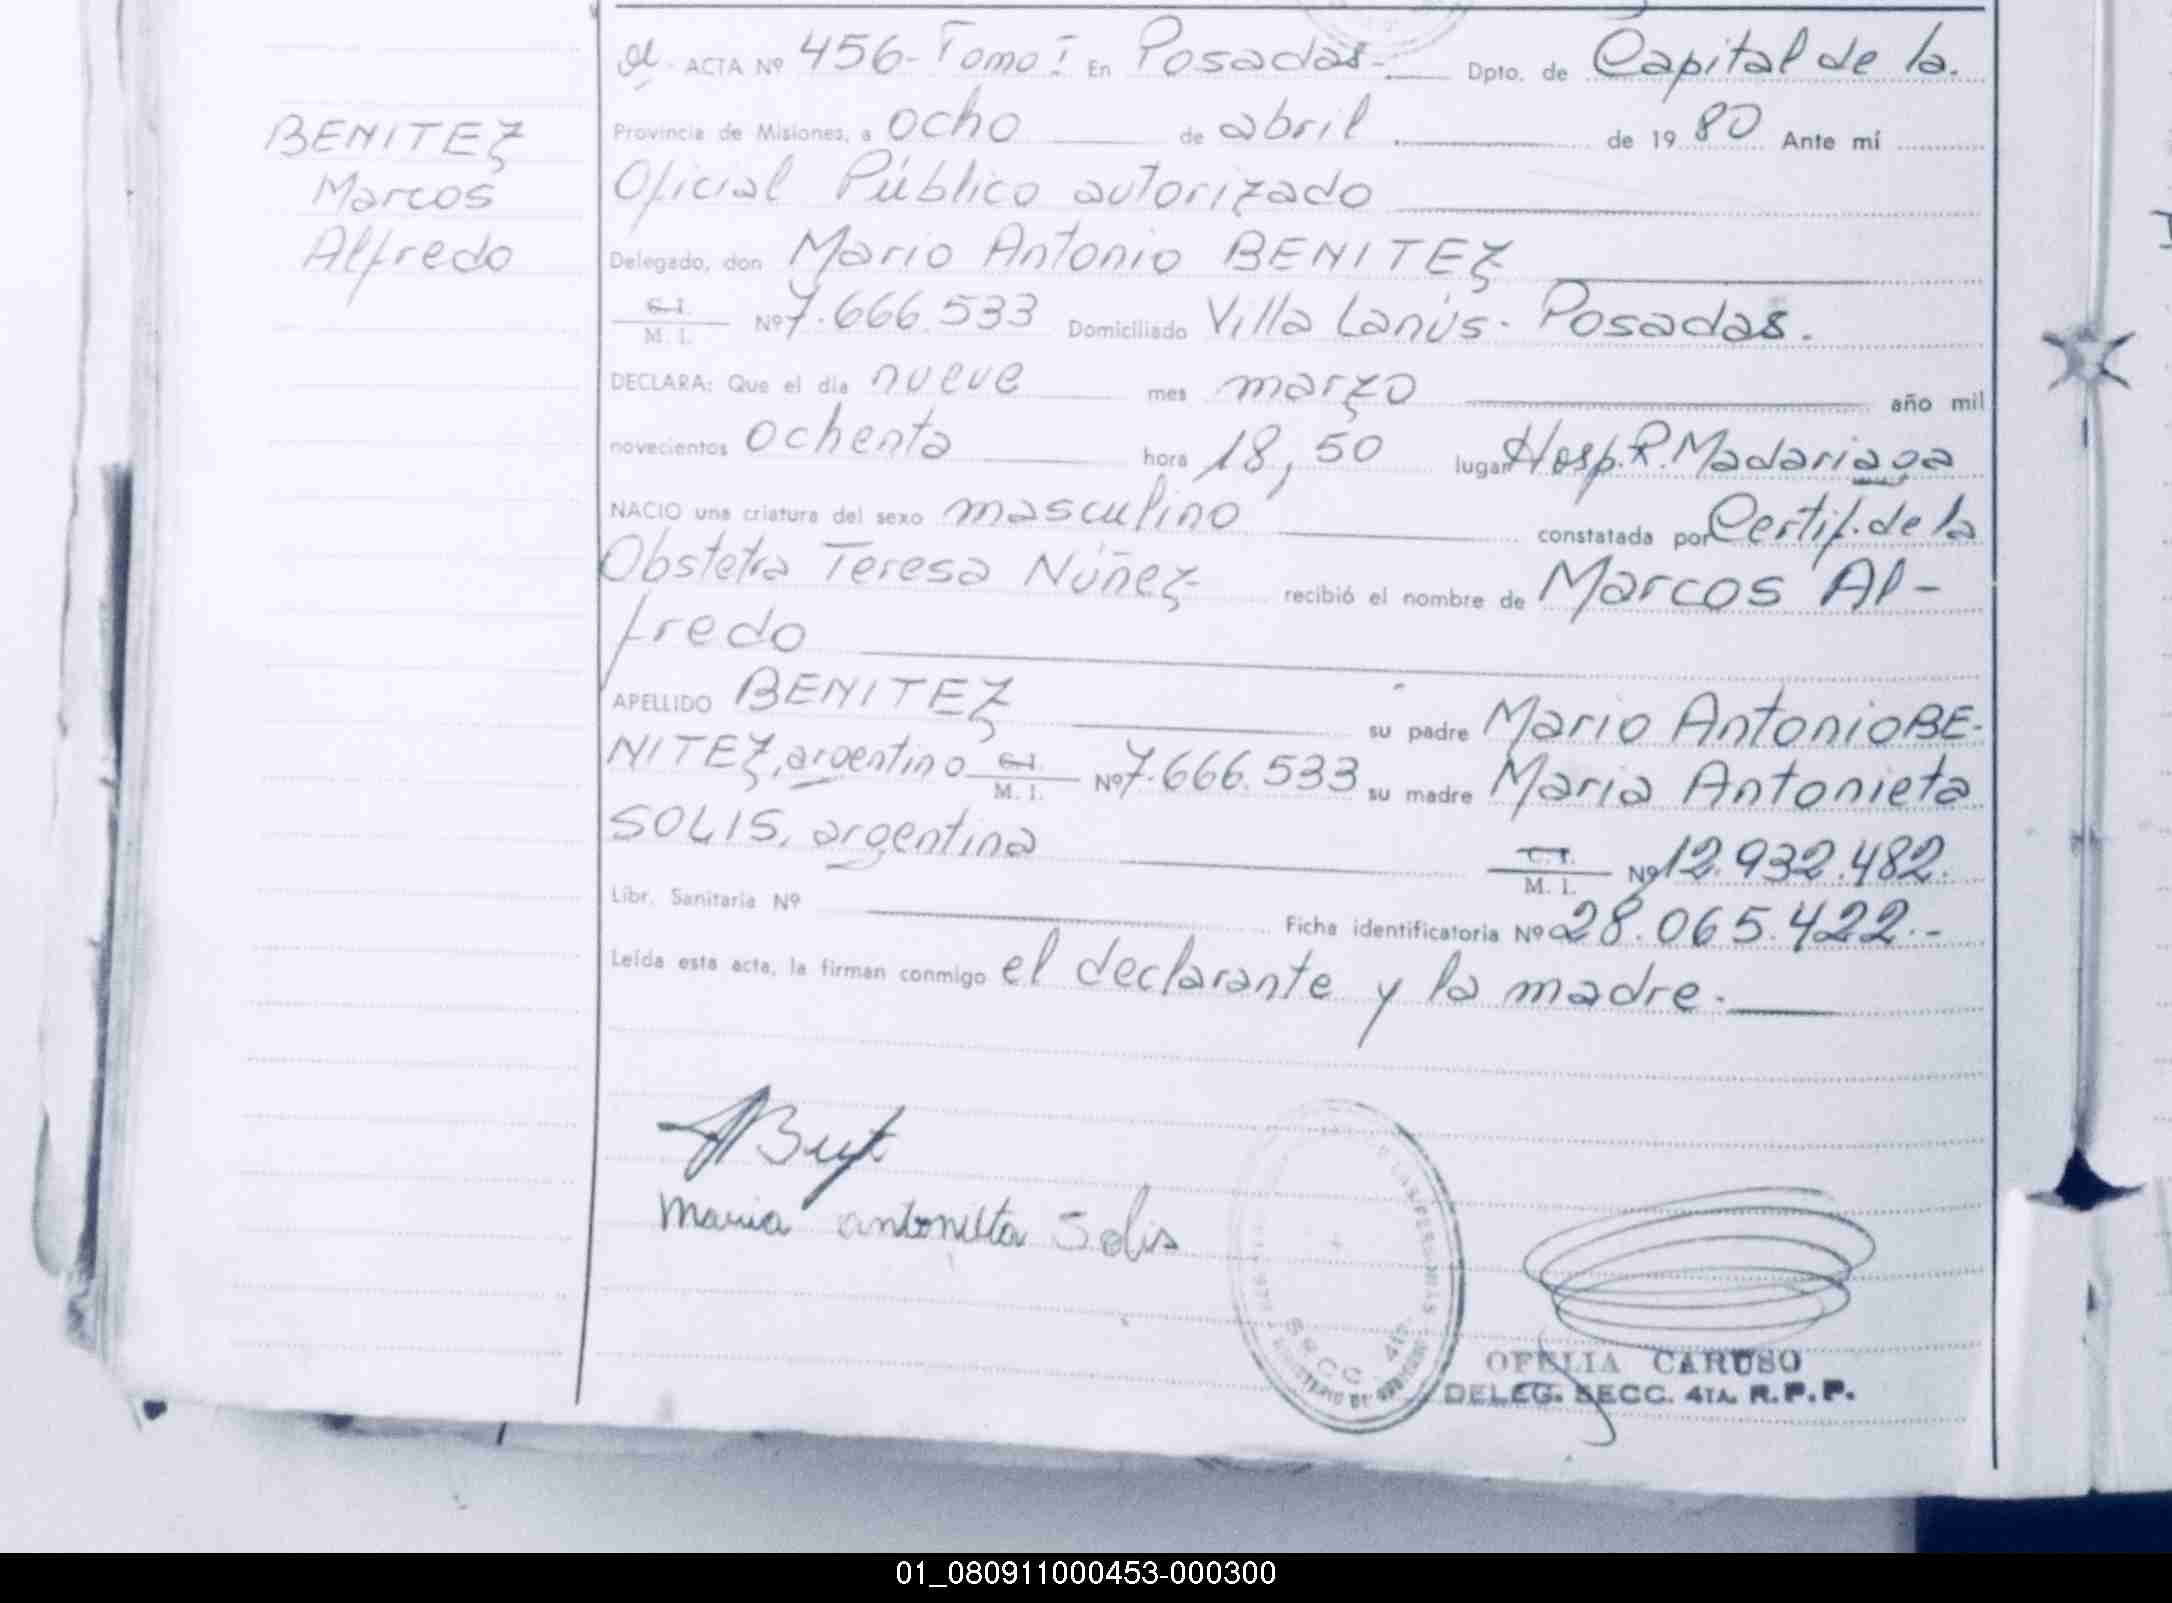 BENITEZ
Marcos
Alfredo
ACTA Nº 456- Tomo I En Posadas.- Dpto. de Capital de la.
Provincia de Misiones, a ocho de abril de 1980 Ante mí
Oficial Público autorizado
Delegado, don Mario Antonio BENITEZ
C.I. M. I. Nº 7.666.533 Domiciliado Villa Lanús. Posadas.
DECLARA: Que el día nueve mes marzo año mil
novecientos ochenta hora 18,50 lugar Hosp. R. Madariaga
NACIO una criatura del sexo masculino constatada por Certif. de la
Obstetra Teresa Núñez recibió el nombre de Marcos Al-
fredo
APELLIDO BENITEZ su padre Mario Antonio BE-
NITEZ, argentino C.I. M. I. Nº 7.666.533 su madre Maria Antonieta
SOLIS, argentina C.I. M. I. Nº 12.932.482.
Libr. Sanitaria Nº Ficha identificatoria Nº 28.065.422.-
Leída esta acta, la firman conmigo el declarante y la madre.
Maria antonieta Solis
SECC. 4ta.
MINISTERIO DE
OFELIA CARUSO
DELEG. SECC. 4TA. R.P.P.
01_080911000453-000300